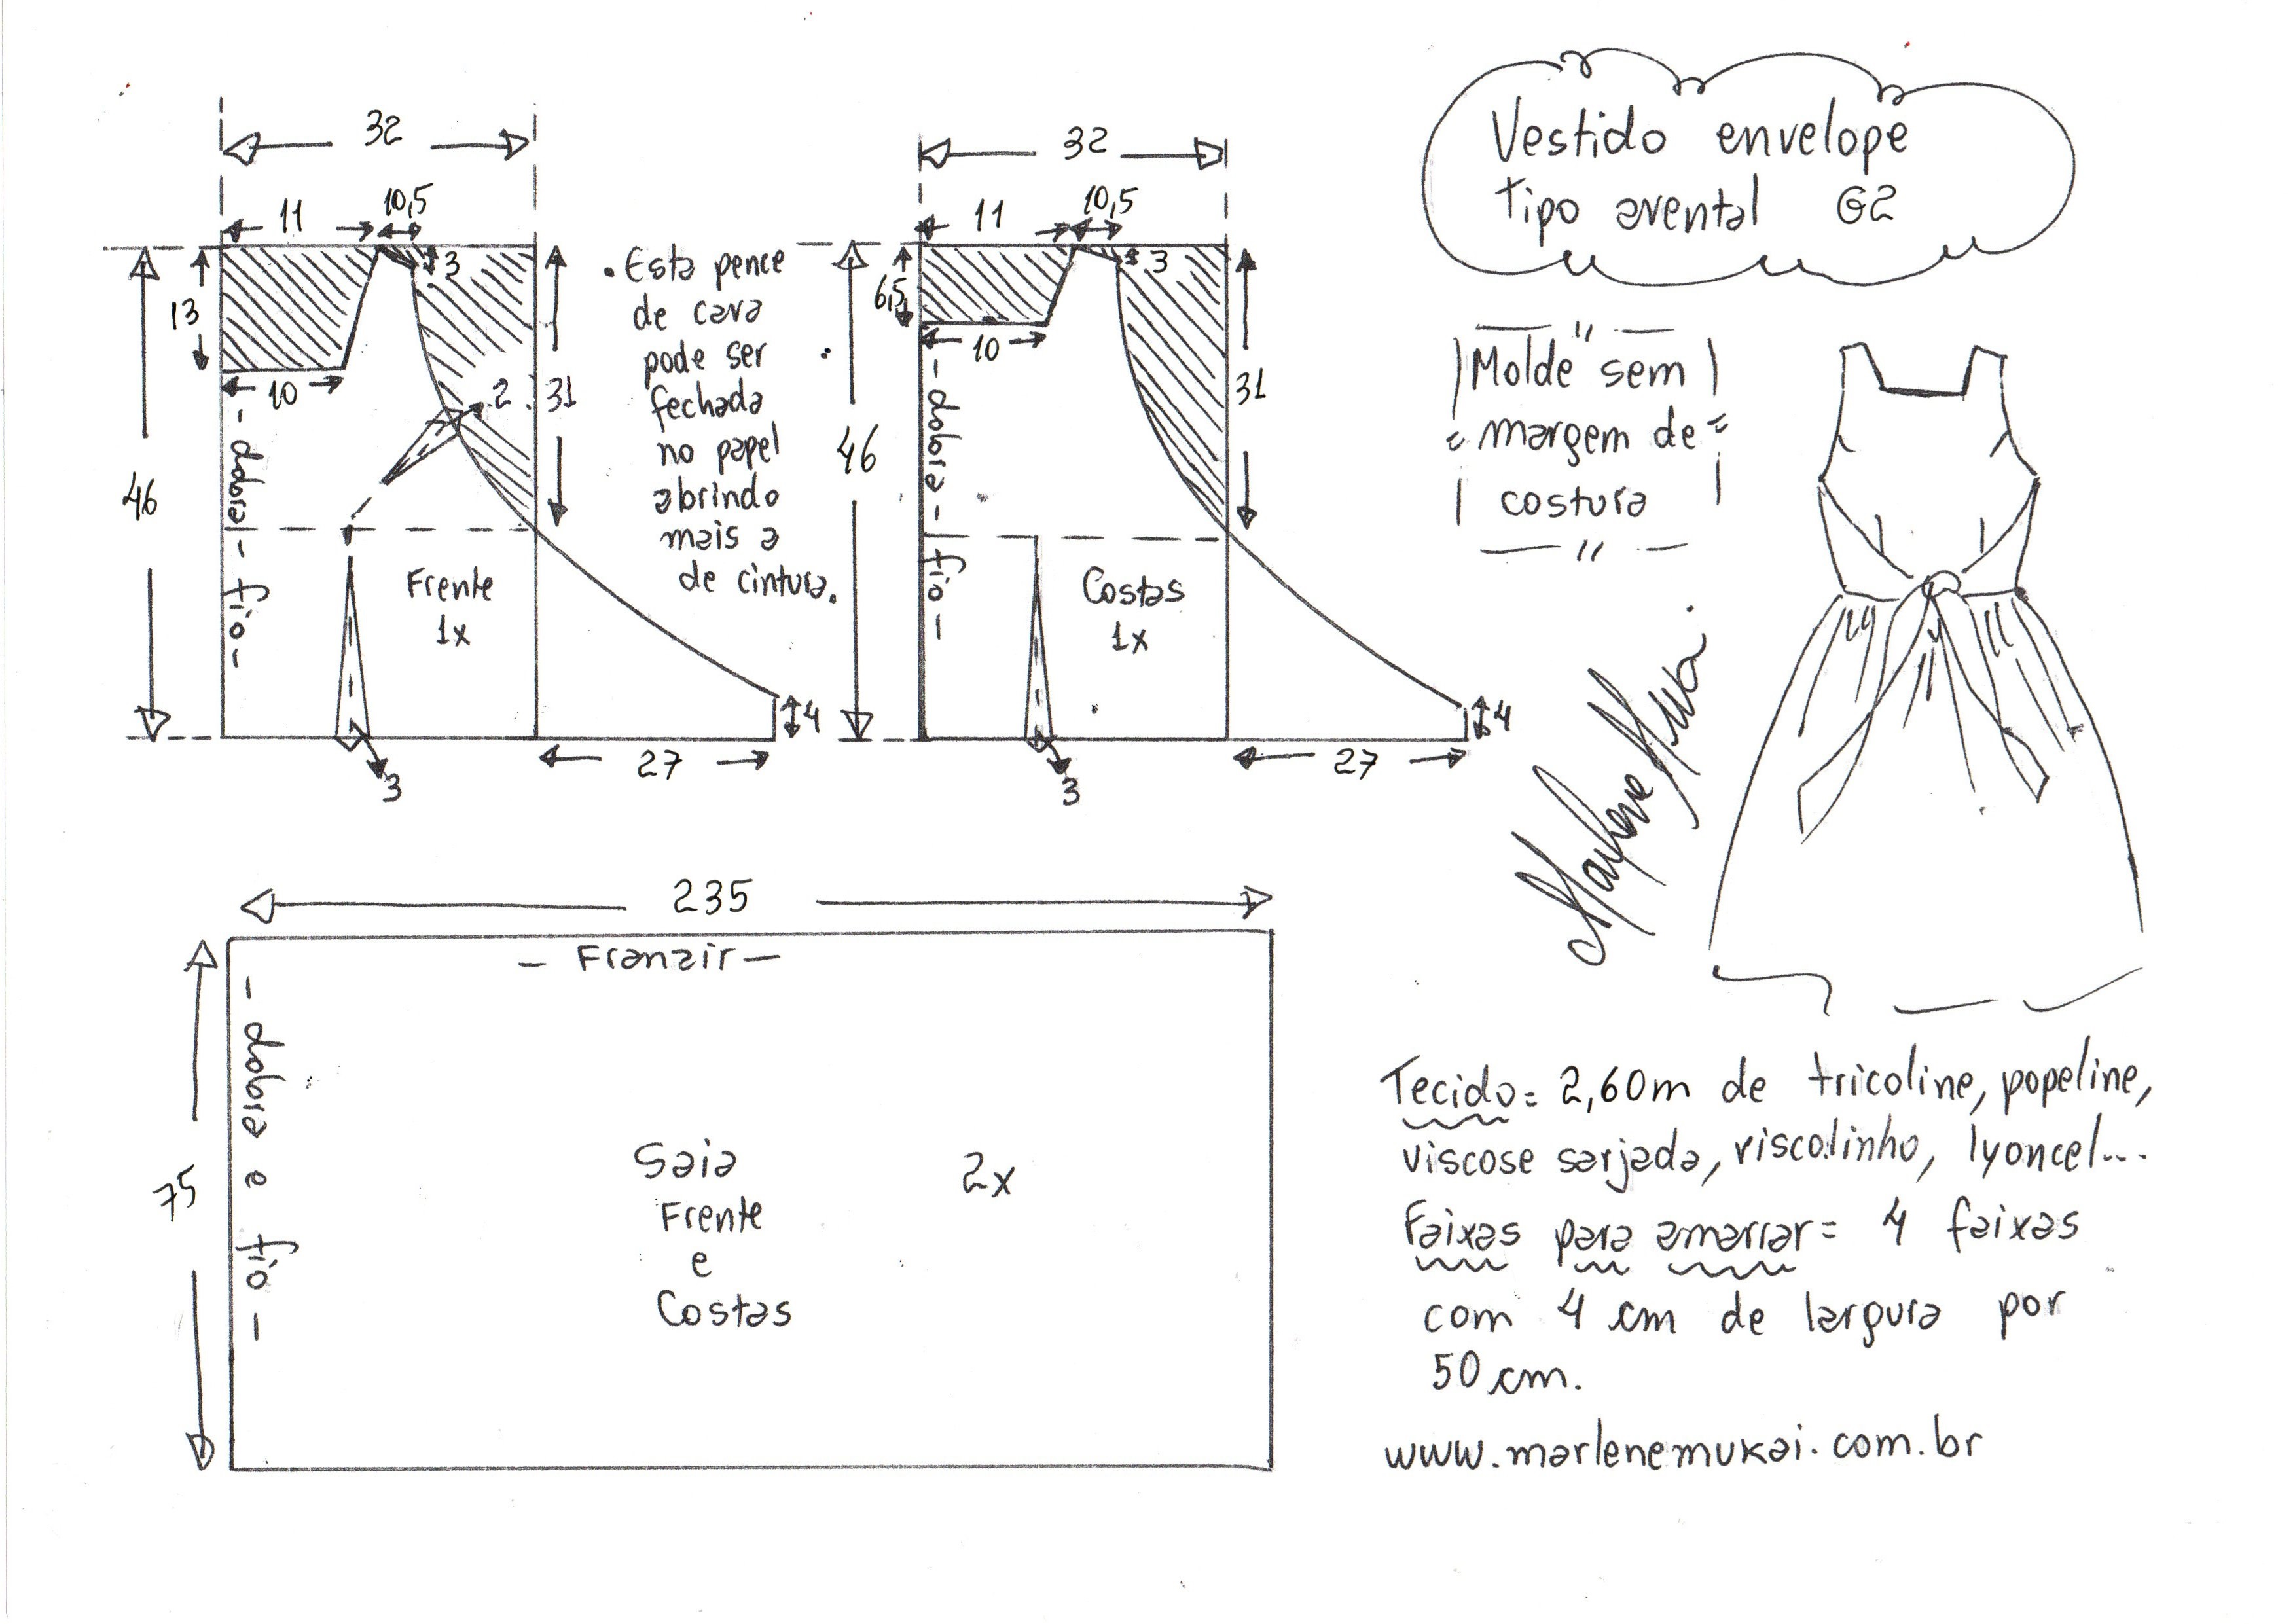 Vestido envelope
Tipo avental G2
32
11
10,5
3
13
10
2
31
46
- dobra - fio -
Frente
1x
4
27
3
. Esta pence
de cava
pode ser
fechada
no papel
abrindo
mais a
de cintura.
32
11
10,5
3
6,5
10
31
46
- dobra - fio -
Costas
1x
4
27
3
Molde sem
margem de
costura
Marlene Mukai.
235
- Franzir -
75
- dobra e fio -
Saia
Frente
e
Costas
2x
Tecido= 2,60m de tricoline, popeline,
viscose sarjada, viscolinho, lyoncel...
Faixas para amarrar= 4 faixas
com 4 cm de largura por
50 cm.
www.marlenemukai.com.br